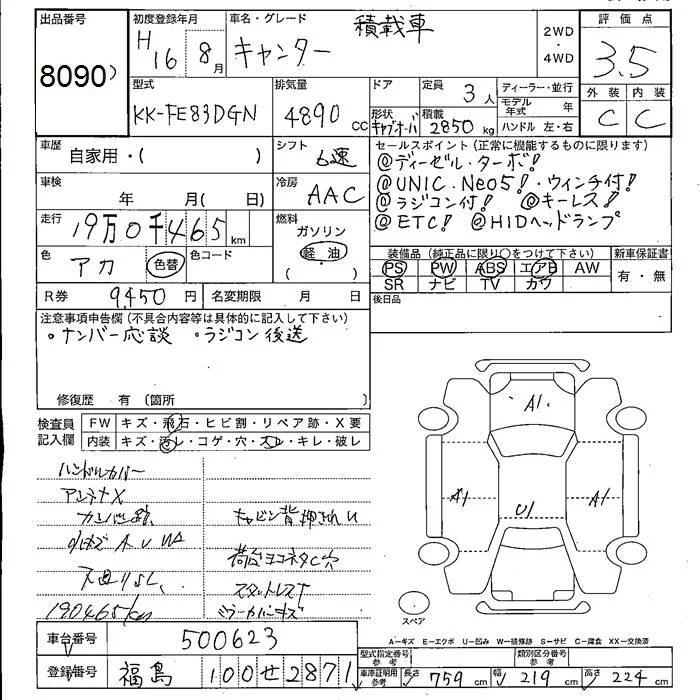 出品番号 初度登録年月 車名・グレード 評価点
8090 H16 8月 キャンター 積載車 2WD・4WD 3.5
外装 内装
C C
型式 排気量 ドア 定員 ディーラー・並行
KK-FE83DGN 4890cc 3人 モデル年式 年
形状 積載 ハンドル 左・右
キャブオーバ 2850kg
車歴 シフト セールスポイント(正常に機能するものに限ります)
自家用・( ) 6速 @ディーゼル・ターボ!
車検 冷房 @UNIC・Neo5!・ウィンチ付!
年 月( 日) AAC @ラジコン付! @キーレス!
走行 燃料 @ETC! @HIDヘッドランプ
19万0千465km ガソリン
色 色コード 軽油 装備品(純正品に限り○をつけて下さい) 新車保証書
アカ 色替 ・( ) PS PW ABS エアB AW 有・無
SR ナビ TV カワ
R券 9,450円 名変期限 月 日 後日品
注意事項申告欄(不具合内容等は具体的に記入して下さい)
・ナンバー応談 ・ラジコン後送
修復歴 有(箇所 )
検査員記入欄 FW キズ・飛石・ヒビ割・リペア跡・X要
内装 キズ・汚レ・コゲ・穴・スレ・キレ・破レ
A1
ハンドルカバー
アンテナX
A1 U1 A1
キャビン背押され U
荷台ヨコネタC穴
スタットレス
190465km
スペア
A-キズ E-エクボ U-凹み W-補修跡 S-サビ C-腐食 XX-交換済
車台番号 500623 型式指定番号 参考 類別区分番号 参考
登録番号 福島 100 せ 2871 車庫証明用 参考 長さ 759cm 幅 219cm 高さ 224cm